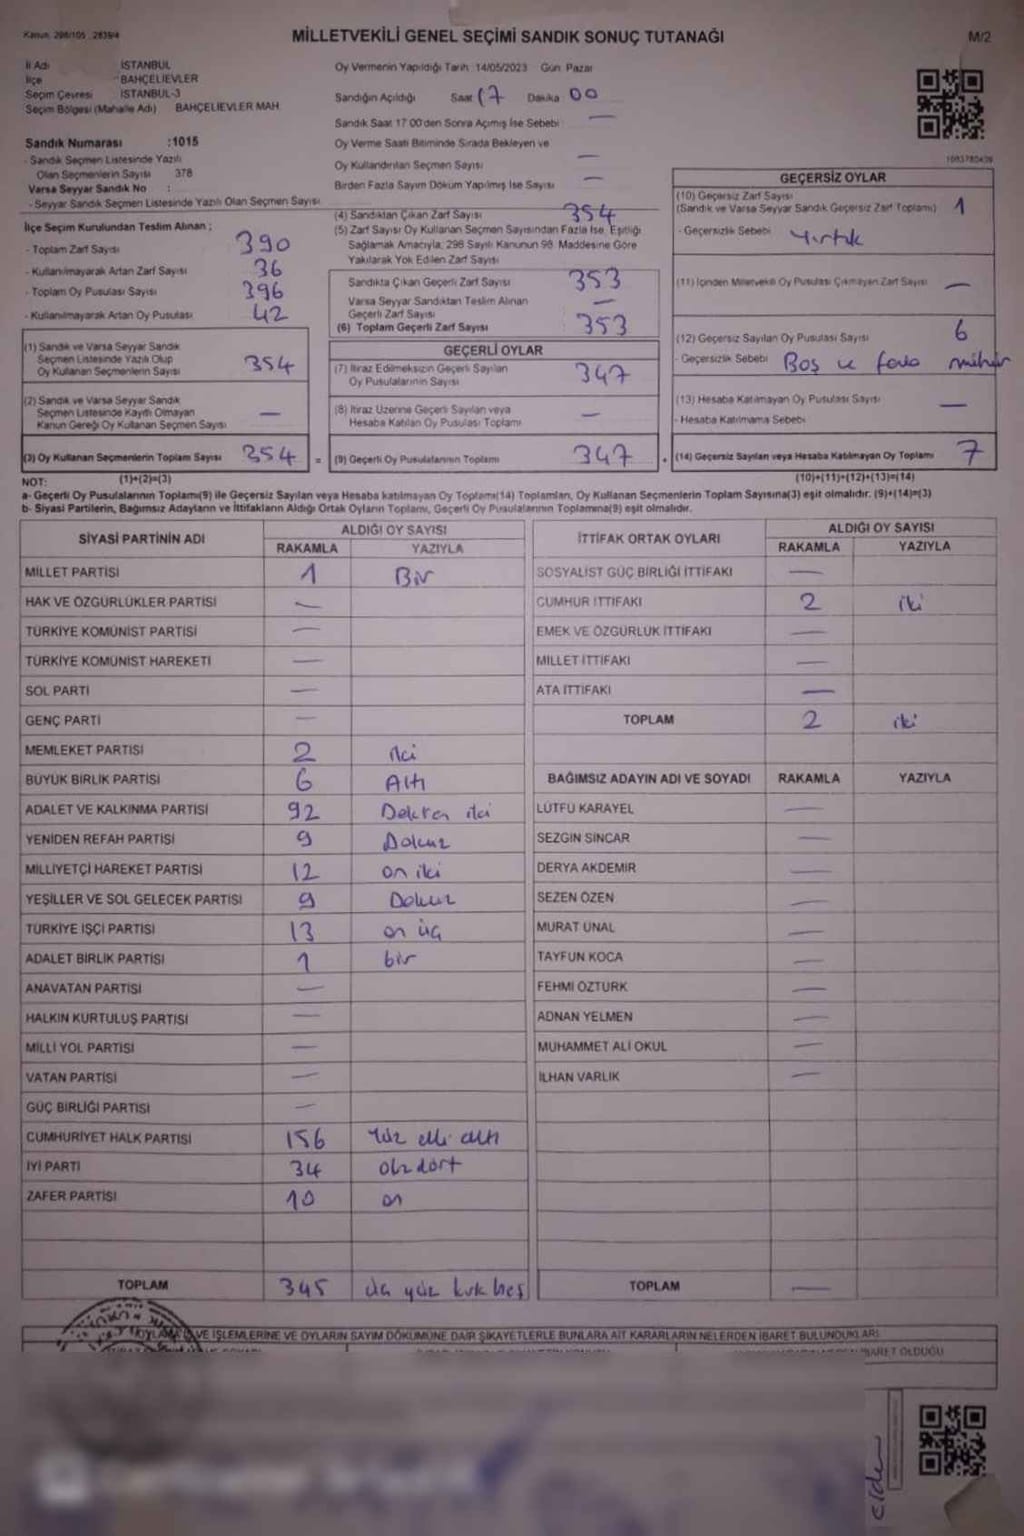 Kanun: 298/105 , 2839/4
MİLLETVEKİLİ GENEL SEÇİMİ SANDIK SONUÇ TUTANAĞI
M/2
İl Adı : İSTANBUL
İlçe : BAHÇELİEVLER
Seçim Çevresi : İSTANBUL-3
Seçim Bölgesi (Mahalle Adı) : BAHÇELİEVLER MAH.
Sandık Numarası :1015
- Sandık Seçmen Listesinde Yazılı
Olan Seçmenlerin Sayısı : 378
Varsa Seyyar Sandık No :
- Seyyar Sandık Seçmen Listesinde Yazılı Olan Seçmen Sayısı:
Oy Vermenin Yapıldığı Tarih :14/05/2023 Gün: Pazar
Sandığın Açıldığı Saat 17 Dakika 00
Sandık Saat 17:00'den Sonra Açılmış İse Sebebi : —
Oy Verme Saati Bitiminde Sırada Bekleyen ve
Oy Kullandırılan Seçmen Sayısı —
Birden Fazla Sayım Döküm Yapılmış İse Sayısı —
1093780439
İlçe Seçim Kurulundan Teslim Alınan ;
- Toplam Zarf Sayısı 390
- Kullanılmayarak Artan Zarf Sayısı 36
- Toplam Oy Pusulası Sayısı 396
- Kullanılmayarak Artan Oy Pusulası 42
(1) Sandık ve Varsa Seyyar Sandık
Seçmen Listesinde Yazılı Olup
Oy Kullanan Seçmenlerin Sayısı 354
(2) Sandık ve Varsa Seyyar Sandık
Seçmen Listesinde Kaydı Olmayan
Kanun Gereği Oy Kullanan Seçmen Sayısı —
(3) Oy Kullanan Seçmenlerin Toplam Sayısı 354 =
(4) Sandıktan Çıkan Zarf Sayısı 354
(5) Zarf Sayısı Oy Kullanan Seçmen Sayısından Fazla İse, Eşitliği
Sağlamak Amacıyla; 298 Sayılı Kanunun 98. Maddesine Göre
Yakılarak Yok Edilen Zarf Sayısı
Sandıkta Çıkan Geçerli Zarf Sayısı 353
Varsa Seyyar Sandıktan Teslim Alınan
Geçerli Zarf Sayısı —
(6) Toplam Geçerli Zarf Sayısı 353
GEÇERLİ OYLAR
(7) İtiraz Edilmeksizin Geçerli Sayılan
Oy Pusulalarının Sayısı 347
(8) İtiraz Üzerine Geçerli Sayılan veya
Hesaba Katılan Oy Pusulası Toplamı —
(9) Geçerli Oy Pusulalarının Toplamı 347 +
GEÇERSİZ OYLAR
(10) Geçersiz Zarf Sayısı
(Sandık ve Varsa Seyyar Sandık Geçersiz Zarf Toplamı) 1
- Geçersizlik Sebebi Yırtık
(11) İçinden Milletvekili Oy Pusulası Çıkmayan Zarf Sayısı —
(12) Geçersiz Sayılan Oy Pusulası Sayısı 6
- Geçersizlik Sebebi Boş ve fazla mühür
(13) Hesaba Katılmayan Oy Pusulası Sayısı —
- Hesaba Katılmama Sebebi
(14) Geçersiz Sayılan veya Hesaba Katılmayan Oy Toplamı 7
NOT: (1)+(2)=(3) (10)+(11)+(12)+(13)=(14)
a- Geçerli Oy Pusulalarının Toplamı(9) ile Geçersiz Sayılan veya Hesaba katılmayan Oy Toplamı(14) Toplamları, Oy Kullanan Seçmenlerin Toplam Sayısına(3) eşit olmalıdır. (9)+(14)=(3)
b- Siyasi Partilerin, Bağımsız Adayların ve İttifakların Aldığı Ortak Oyların Toplamı, Geçerli Oy Pusulalarının Toplamına(9) eşit olmalıdır.
SİYASİ PARTİNİN ADI ALDIĞI OY SAYISI
RAKAMLA YAZIYLA
MİLLET PARTİSİ 1 Bir
HAK VE ÖZGÜRLÜKLER PARTİSİ —
TÜRKİYE KOMÜNİST PARTİSİ —
TÜRKİYE KOMÜNİST HAREKETİ —
SOL PARTİ —
GENÇ PARTİ —
MEMLEKET PARTİSİ 2 iki
BÜYÜK BİRLİK PARTİSİ 6 Altı
ADALET VE KALKINMA PARTİSİ 92 Doksan iki
YENİDEN REFAH PARTİSİ 9 Dokuz
MİLLİYETÇİ HAREKET PARTİSİ 12 on iki
YEŞİLLER VE SOL GELECEK PARTİSİ 9 Dokuz
TÜRKİYE İŞÇİ PARTİSİ 13 on üç
ADALET BİRLİK PARTİSİ 1 bir
ANAVATAN PARTİSİ —
HALKIN KURTULUŞ PARTİSİ —
MİLLİ YOL PARTİSİ —
VATAN PARTİSİ —
GÜÇ BİRLİĞİ PARTİSİ —
CUMHURİYET HALK PARTİSİ 156 Yüz elli altı
İYİ PARTİ 34 otuz dört
ZAFER PARTİSİ 10 on
TOPLAM 345 üç yüz kırk beş
İTTİFAK ORTAK OYLARI ALDIĞI OY SAYISI
RAKAMLA YAZIYLA
SOSYALİST GÜÇ BİRLİĞİ İTTİFAKI —
CUMHUR İTTİFAKI 2 iki
EMEK VE ÖZGÜRLÜK İTTİFAKI —
MİLLET İTTİFAKI —
ATA İTTİFAKI —
TOPLAM 2 iki
BAĞIMSIZ ADAYIN ADI VE SOYADI RAKAMLA YAZIYLA
LÜTFÜ KARAYEL —
SEZGİN SİNCAR —
DERYA AKDEMİR —
SEZEN ÖZEN —
MURAT ÜNAL —
TAYFUN KOCA —
FEHMİ ÖZTÜRK —
ADNAN YELMEN —
MUHAMMET ALİ OKUL —
İLHAN VARLIK —
TOPLAM —
VE İŞLEMLERİNE VE OYLARIN SAYIM DÖKÜMÜNE DAİR ŞİKAYETLERLE BUNLARA AİT KARARLARIN NELERDEN İBARET BULUNDUKLARI
İBARET OLDUĞU